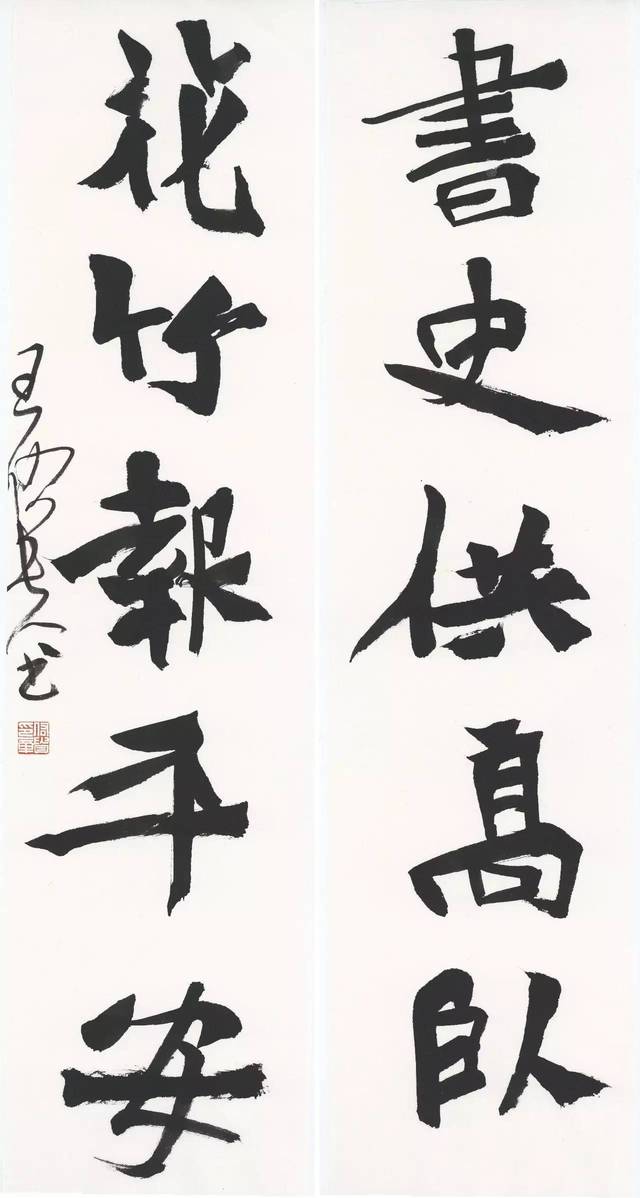 書史供高臥
花竹報平安